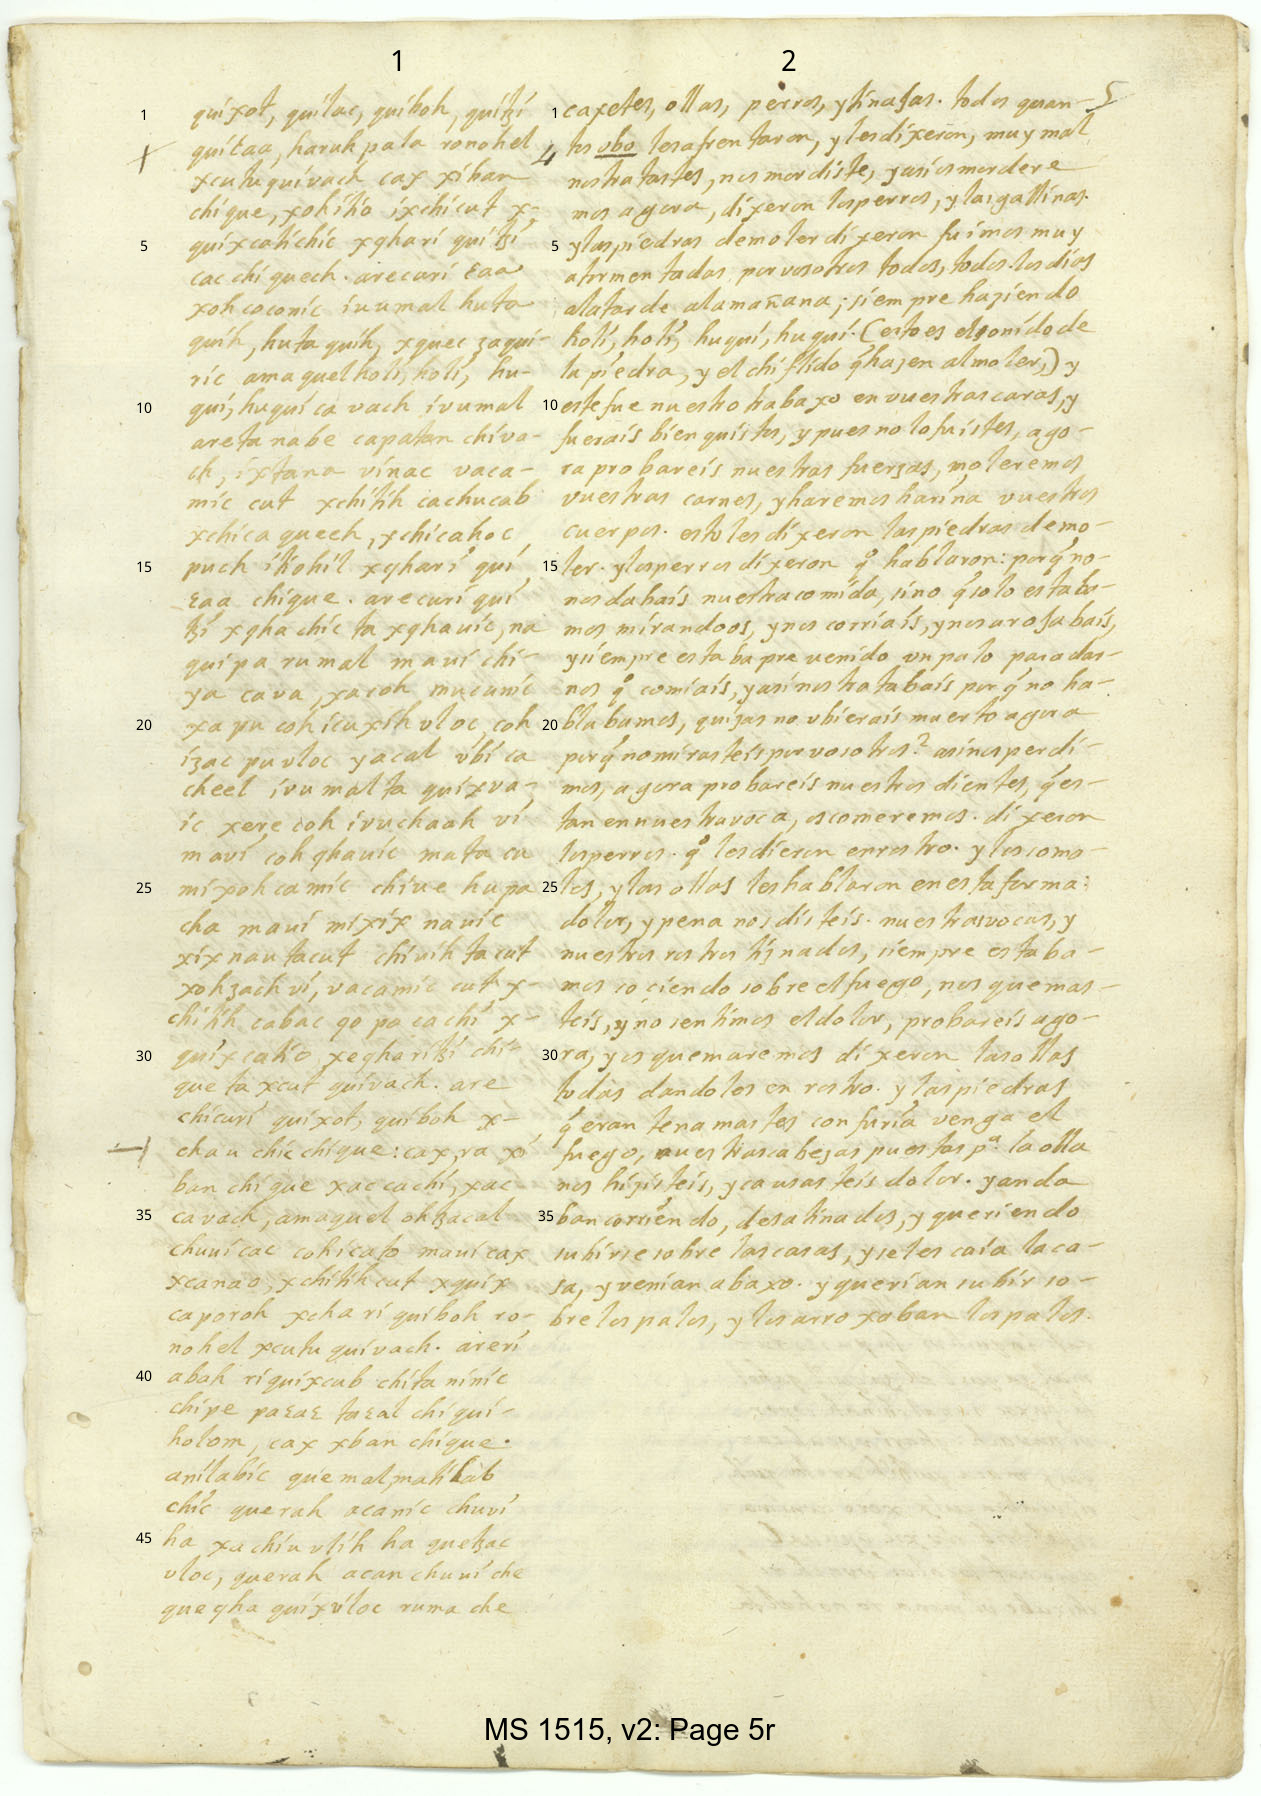 1
quixot, quilac, quiboh, quitzi
quicaa, haruh pala ronohel
xcutu quivach cax xiban
chique, xohitio ixchicut x-
quixcatichic xqhari quitzi
cac chiquech. arecuri caa
xohcoconic ivumal huta
quih, hutaquih, xquec zaqui-
ric amaquel holi, holi, hu-
qui, huqui ca vach ivumal
areta nabe capatan chiva-
ch, ixtana vinac vaca-
mic cut xchitih cachucab
xchicaqueeh, xchicahoc
puch itiohil xqhari qui
caa chique. arecuri qui
tzi xqhachic ta xqhauic, na
quipa rumal maui chi-
ya cava, xacoh mucunic
xapu cohicuxih vloc, coh
izac pu vloc yacal vbi ca
cheel ivumal ta quixva-
ic xere coh ivuchaah vi
mavi coh qhauic mata ca
mixohcamic chiue hupa
cha maui mixix nauic
xix nautacut chiuih tacut
xohzach vi, vacamic cut x-
chitih cabac qo pa cachi x-
quixcatio xeqharitzi chi-
que ta xcut quivach. are
chicuri quixot, quiboh x-
chau chic chique: cax, ra xi
ban chique xac cachi, xac
cavach, amaquel ohtzacal
chuuicac cohicato maui cax
xcanao, xchitihcut xquix
caporoh xcha ri quiboh ro-
nohel xcutu quivach. areri
abah ri quixcub chita ninic
chipe pacac tacal chiqui-
holom, cax xban chique.
anilabic quemalmalihlab
chic querah acanic chuvi
ha xachiu vlih ha quetzac
vloc, querah acan chuui che
queqha quixvloc ruma che
2
5
caxetes, ollas, perros, y tinajas. todos quan-
4 tos obo les afrentaron, y les dixeron, muy mal
nos tratastes, nos mordiste, y asi os mordere
mos agora, dixeron los perros, y las gallinas.
y las piedras de moler dixeron fuimos muy
atormentadas por vosotros todos, todos los dias
a la tarde a la mañana; siempre haziendo
holi, holi, huqui, huqui. (esto es el sonido de
la piedra, y el chiflido q̃ hazen al moler,) y
este fue nuestro trabaxo en vuestras caras, y
fuerais bien quistos, y pues no lo fuistes, ago-
ra probareis nuestras fuerzas, moleremos
vuestras carnes, y haremos harina vuestros
cuerpos. esto les dixeron las piedras de mo-
ler. y los perros dixeron qº hablaron: porq̃ no-
nos dabais nuestra comida, sino q̃ solo estaba-
mos mirandoos, y nos corriais, y nos arojabais,
y siempre estaba prevenido vn palo para dar-
nos qº comiais, y asi nos tratabais porq̃ no ha-
blabamos, quizas no vbierais muerto agora
porq̃ no mirasteis por vosotros? asi nos perdi-
mos, agora probareis nuestros dientes, q̃ es-
tan en nuestra voca, os comeremos. dixeron
los perros. qº les dieron en rostro. y los como-
les, y las ollas les hablaron en esta forma:
dolor, y pena nos disteis. nuestras vocas, y
nuestros rostros tiznados, siempre estaba-
mos cociendo sobre el fuego, nos quemas-
teis, y no sentimos el dolor, probareis ago-
ra, y os quemaremos dixeron las ollas
todas dandoles en rostro. y las piedras
q̃ eran tenamastes con furia venga el
fuego, nuestras cabezas puestas pª. la olla
nos hizisteis, y causasteis dolor. y anda
ban corriendo, desatinados, y queriendo
subirse sobre las casas, y se les caia la ca-
sa, y venian abaxo. y querian subir so-
bre los palos, y los arroxaban los palos.
MS 1515, v2: Page 5r